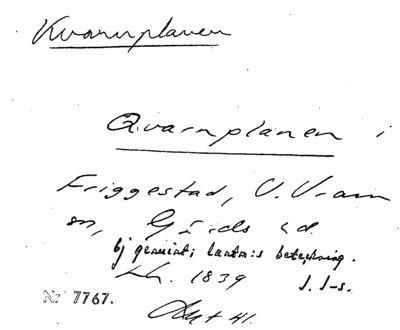 Kvarnplanen
Qvarnplanen i
Friggestad, V. Vram
sn, Gärds hd.
bj gemint; lantm:s beteckning.
1839 J. J-s.
Nr 7767.